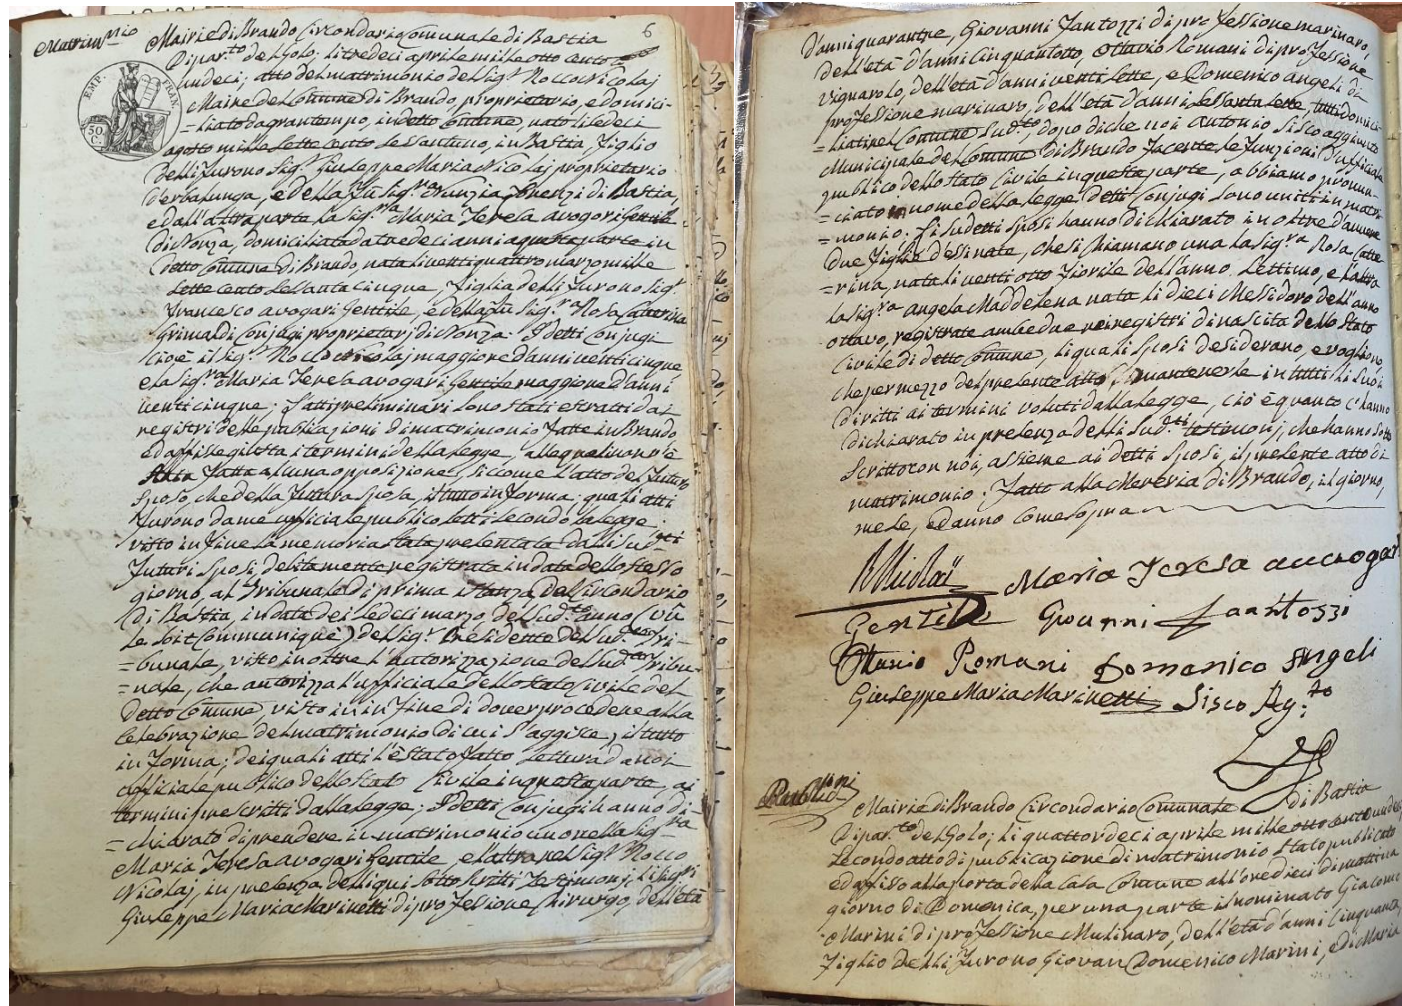 6
Matrimonio
EMP. FRAN.
50 C.
Mairie di Brando Circondario Comunale di Bastia
Dipar.to del Golo; li tredeci aprile mille otto cento
undeci; atto del matrimonio del Sig.r Rocco Nicolaj
Maire del Comune di Brando, proprietario, e domici-
=liato da gran tempo, in detto Comune, nato li sedeci
agosto mille sette cento sessantuno, in Bastia, figlio
delli furono Sig.r Giuseppe Maria Nicolaj proprietario
d'erbalunga, e della fu Sig.ra Nunzia Frenzi di Bastia,
e dall'altra parte la Sig.ra Maria Teresa avogari Gentile
di Nonza, domiciliata da tredeci anni a questa parte in
detto Comune di Brando, nata li venti quattro marzo mille
sette cento sessanta cinque, figlia delli furono Sig.r
francesco avogari Gentile, e della fu Sig.ra Rosa Caterina
Grimaldi Conjugi proprietarj di Nonza. I detti Conjugi
cioè il Sig.r Rocco Nicolaj maggiore d'anni venti cinque,
e la Sig.ra Maria Teresa avogari Gentile maggiore d'anni
venti cinque; I atti preliminari sono stati estratti dai
registri delle publicazioni di matrimonio fatte in Brando
ed affisse giusta i termini della legge, alle quali non v'è
stata fatta alcuna opposizione, siccome l'atto del futuro
sposo, che della futura sposa, il tutto in forma; quali atti
furono da me ufficiale publico letti secondo la legge.
visto in fine la memoria stata presentata dalli sud.tti
futuri sposi debitamente registrata in data dello stesso
giorno, al Tribunale di prima istanza del Circondario
di Bastia, in data dei sedeci marzo del sud.to anno (vû
le soit Communiqué) del Sig.r Presidente del sud.to Tri-
=bunale, visto in oltre l'autorizzazione del sud.to Tribu-
=nale, che autorizza l'ufficiale dello stato Civile del
detto Comune visto in in fine di dover procedere alla
celebrazione del matrimonio di cui s'aggisce, il tutto
in forma; dei quali atti l'è stato fatto lettura da noi
officiale publico dello stato Civile in questa parte, ai
termini prescritti dalla legge: I detti Conjugi hanno di-
=chiarato di prendere in matrimonio uno nella Sig.ra
Maria Teresa avogari Gentile, e l'altra nel Sig.r Rocco
Nicolaj, in presenza delli qui sotto scritti testimonj li Sig.ri
Giuseppe Maria Marinetti di professione Chirurgo, dell'età
d'anni quarantre, Giovanni Fantozzi di professione marinaro,
dell'età d'anni cinquantotto, Ottavio Romani di professione
vignarolo, dell'età d'anni venti sette, e Domenico angeli di
professione marinaro, dell'età d'anni sessanta sette, tutti domici-
=liati nel Comune sud.to; dopo di che noi antonio Sisco aggiunto
Municipale del Comune di Brando facente le funzioni d'ufficiale
publico dello stato Civile in questa parte, abbiamo pronun-
=ciato in nome della legge detti Conjugi sono uniti in matri-
=monio; I sudetti sposi hanno dichiarato in oltre d'avere
due figlie dessinate, che si chiamano una la Sig.ra Rosa Catte-
=rina, nata li venti otto fiorile dell'anno settimo, e l'altra
la Sig.ra angela Maddelena nata li dieci Messidoro dell'anno
ottavo, registrate ambedue nei registri di nascita dello stato
Civile di detto Comune, li quali sposi desiderano, e vogliono,
che per mezzo del presente atto mantenerle in tutti li suoi
diritti ai termini voluti dalla legge, ciò è quanto c'hanno
dichiarato in presenza delli sud.tti testimonj, che hanno sotto
scritto con noi, assieme ai detti sposi il presente atto di
matrimonio. fatto alla Mereria di Brando, il giorno,
mese, ed anno come sopra
RNicolaÿ Maria Teresa auuogari
Gentile Giovanni fantozzi
Ottavio Romani Domenico Angeli
Giuseppe Maria Marinetti Sisco Ag.to
Publicni
Mairie di Brando Circondario Comunale di Bastia
Dipar.to del Golo; li quattordeci aprile mille otto cento undeci,
secondo atto di publicazione di matrimonio stato publicato
ed affisso alla porta della Casa Comune all'ore dieci di mattina
giorno di Domenica, per una parte il nominato Giacomo
Marini di professione Mulinaro, dell'età d'anni cinquanta,
figlio delli furono Giovan Domenico Marini, e di Maria